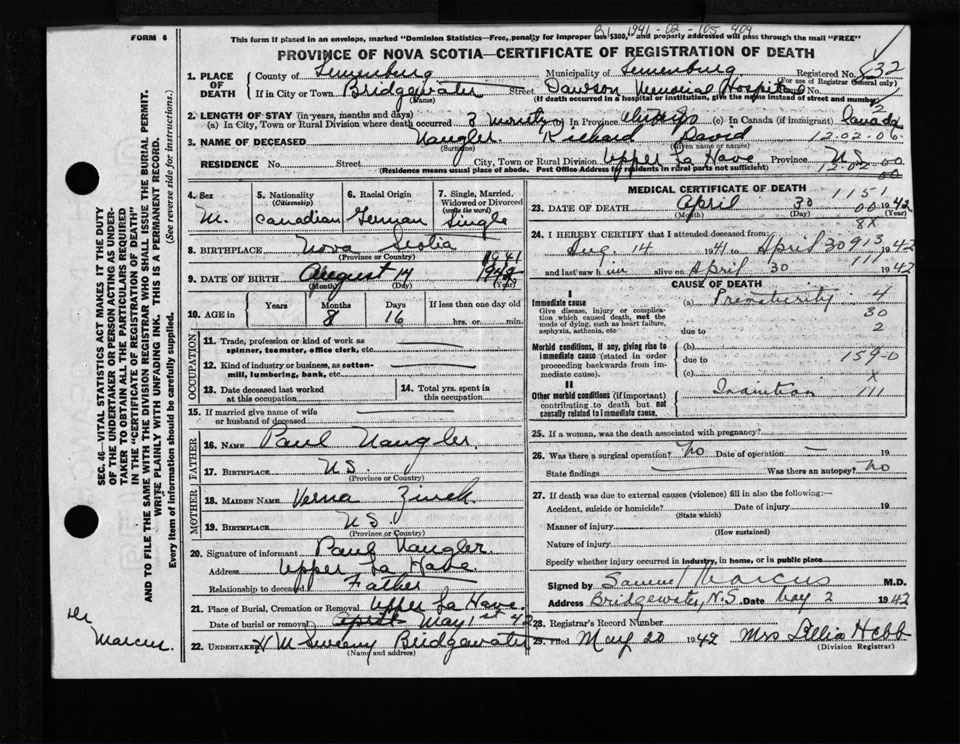 FORM 6
This form if placed in an envelope, marked "Dominion Statistics—Free, penalty for improper use $300," and properly addressed will pass through the mail "FREE"
1941-02-105-909
PROVINCE OF NOVA SCOTIA—CERTIFICATE OF REGISTRATION OF DEATH
1. PLACE OF DEATH County of Lunenburg Municipality of Lunenburg Registered No. 832
(For use of Registrar General only)
If in City or Town Bridgewater (Name) Street Dawson Memorial Hospital No.
(If death occurred in a hospital or institution, give the name instead of street and number)
2. LENGTH OF STAY (in years, months and days)
(a) In City, Town or Rural Division where death occurred (b) In Province (c) In Canada (if immigrant) Canada
3. NAME OF DECEASED Naugler Richard David 12.02.06
(Surname) (Given name or names)
RESIDENCE No. Street City, Town or Rural Division Upper La Have Province NS 12-02-00
(Residence means usual place of abode. Post Office Address for residents in rural parts not sufficient) 00
4. Sex M.
5. Nationality (Citizenship) Canadian
6. Racial Origin German
7. Single, Married, Widowed or Divorced (write the word) Single
8. BIRTHPLACE Nova Scotia
(Province or Country)
9. DATE OF BIRTH August 14 1941 1942
(Month) (Day) (Year)
10. AGE in Years Months 8 Days 16 If less than one day old hrs. or min.
OCCUPATION
11. Trade, profession or kind of work as spinner, teamster, office clerk, etc.
12. Kind of industry or business, as cotton-mill, lumbering, bank, etc.
13. Date deceased last worked at this occupation
14. Total yrs. spent in this occupation
15. If married give name of wife or husband of deceased
FATHER
16. NAME Paul Naugler
17. BIRTHPLACE NS.
(Province or Country)
MOTHER
18. MAIDEN NAME Verna Zinck
19. BIRTHPLACE NS.
(Province or Country)
20. Signature of informant Paul Naugler
Address Upper La Have
Relationship to deceased Father
21. Place of Burial, Cremation or Removal Upper La Have
Date of burial or removal April May 1st 42
22. UNDERTAKER Sweeny Bridgewater
(Name and address)
MEDICAL CERTIFICATE OF DEATH
1151
23. DATE OF DEATH April 30 1942
(Month) (Day) (Year)
00
8X
24. I HEREBY CERTIFY that I attended deceased from:
Aug. 14 1941 to April 30 1942
913
and last saw him alive on April 30 1942
111
CAUSE OF DEATH
I
Immediate cause (a) Prematurity 4
Give disease, injury or complication which caused death, not the mode of dying, such as heart failure, asphyxia, asthenia, etc
30
due to 2
Morbid conditions, if any, giving rise to immediate cause (stated in order proceeding backwards from immediate cause).
(b)
due to 159-0
(c) X
II
Other morbid conditions (if important) contributing to death but not causally related to immediate cause.
Inanition 111
25. If a woman, was the death associated with pregnancy?
26. Was there a surgical operation? No Date of operation 19
State findings Was there an autopsy? No
27. If death was due to external causes (violence) fill in also the following:—
Accident, suicide or homicide? Date of injury 19
(State which)
Manner of injury
(How sustained)
Nature of injury
Specify whether injury occurred in industry, in home, or in public place
Signed by Samuel Marcus M.D.
Address Bridgewater, N.S. Date May 2 1942
28. Registrar's Record Number
29. Filed May 20 1942 Mrs Lillia Hebb
(Division Registrar)
SEC. 46—VITAL STATISTICS ACT MAKES IT THE DUTY
OF THE UNDERTAKER OR PERSON ACTING AS UNDER-
TAKER TO OBTAIN ALL THE PARTICULARS REQUIRED
IN THE "CERTIFICATE OF REGISTRATION OF DEATH"
AND TO FILE THE SAME WITH THE DIVISION REGISTRAR WHO SHALL ISSUE THE BURIAL PERMIT.
WRITE PLAINLY WITH UNFADING INK. THIS IS A PERMANENT RECORD.
Every item of information should be carefully supplied. (See reverse side for instructions.)
Dr
Marcus.